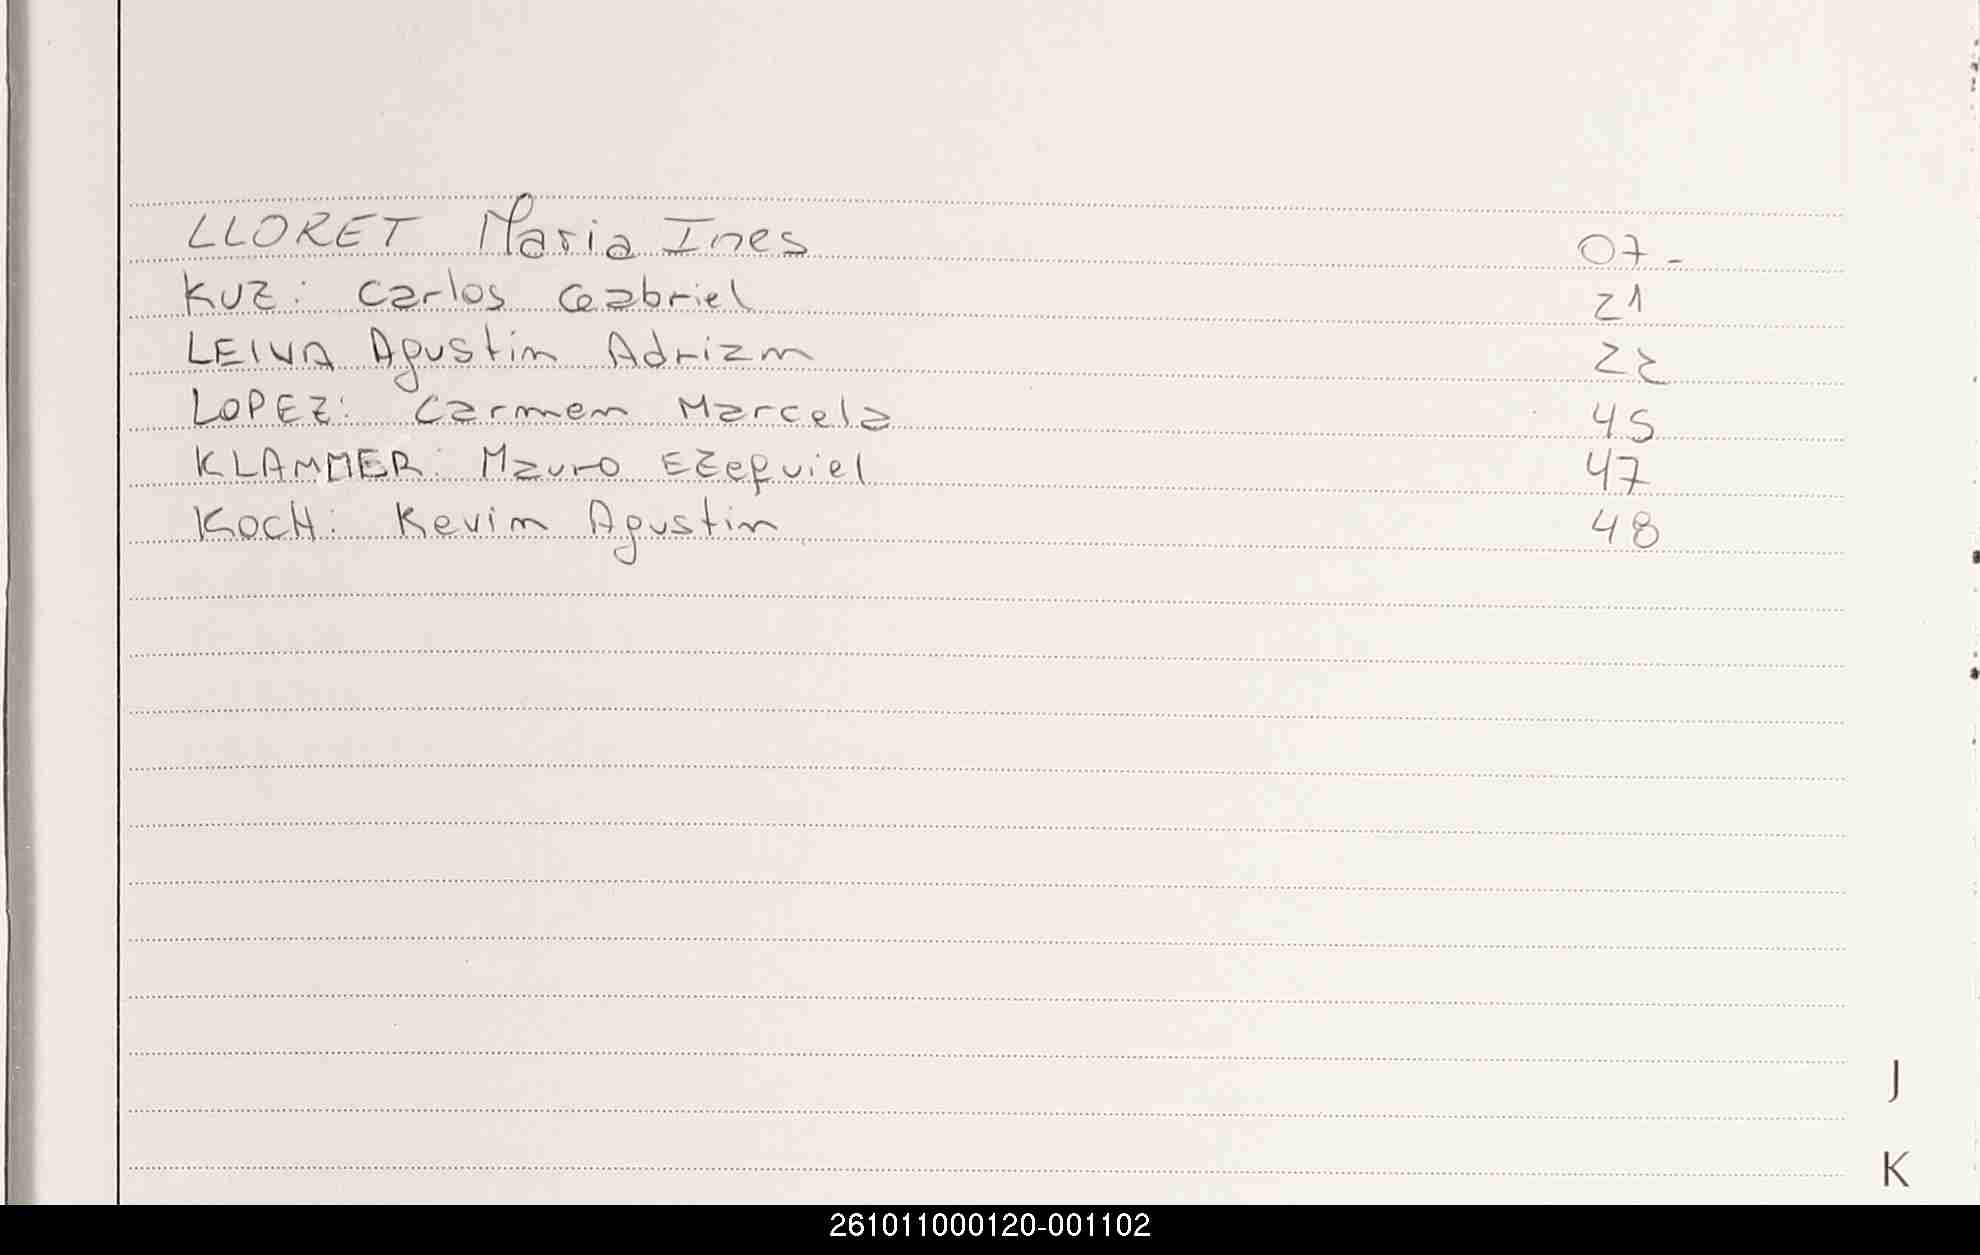 LLORET Maria Ines 07-
KUZ: Carlos Gabriel 21
LEIVA Agustin Adrian 22
LOPEZ: Carmen Marcela 45
KLAMMER: Mauro Ezequiel 47
KOCH: Kevin Agustin 48
J
K
261011000120-001102